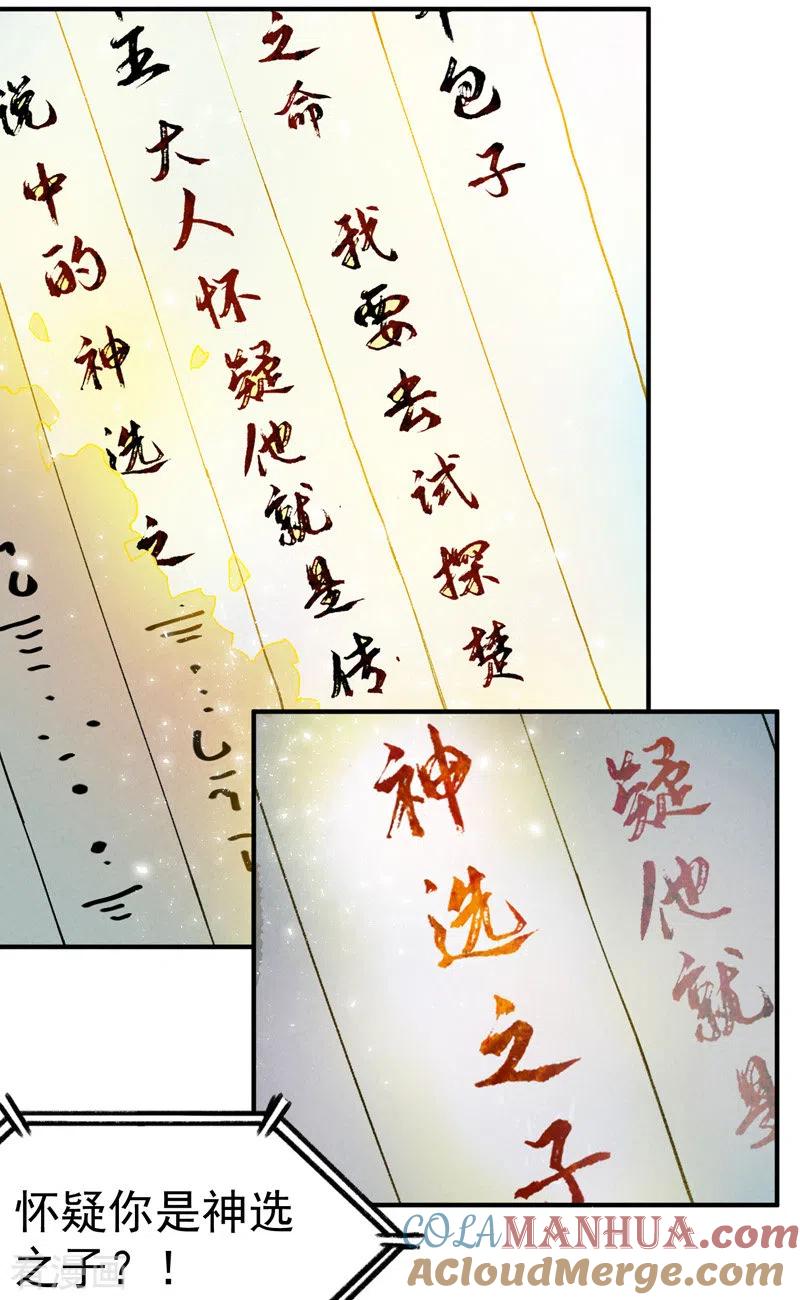 包子
之命 我要去试探楚
五大人怀疑他就是传
说中的神选之
疑他就是
神选之子
怀疑你是神选
之子？！
看漫画
COLAMANHUA.com
ACloudMerge.com